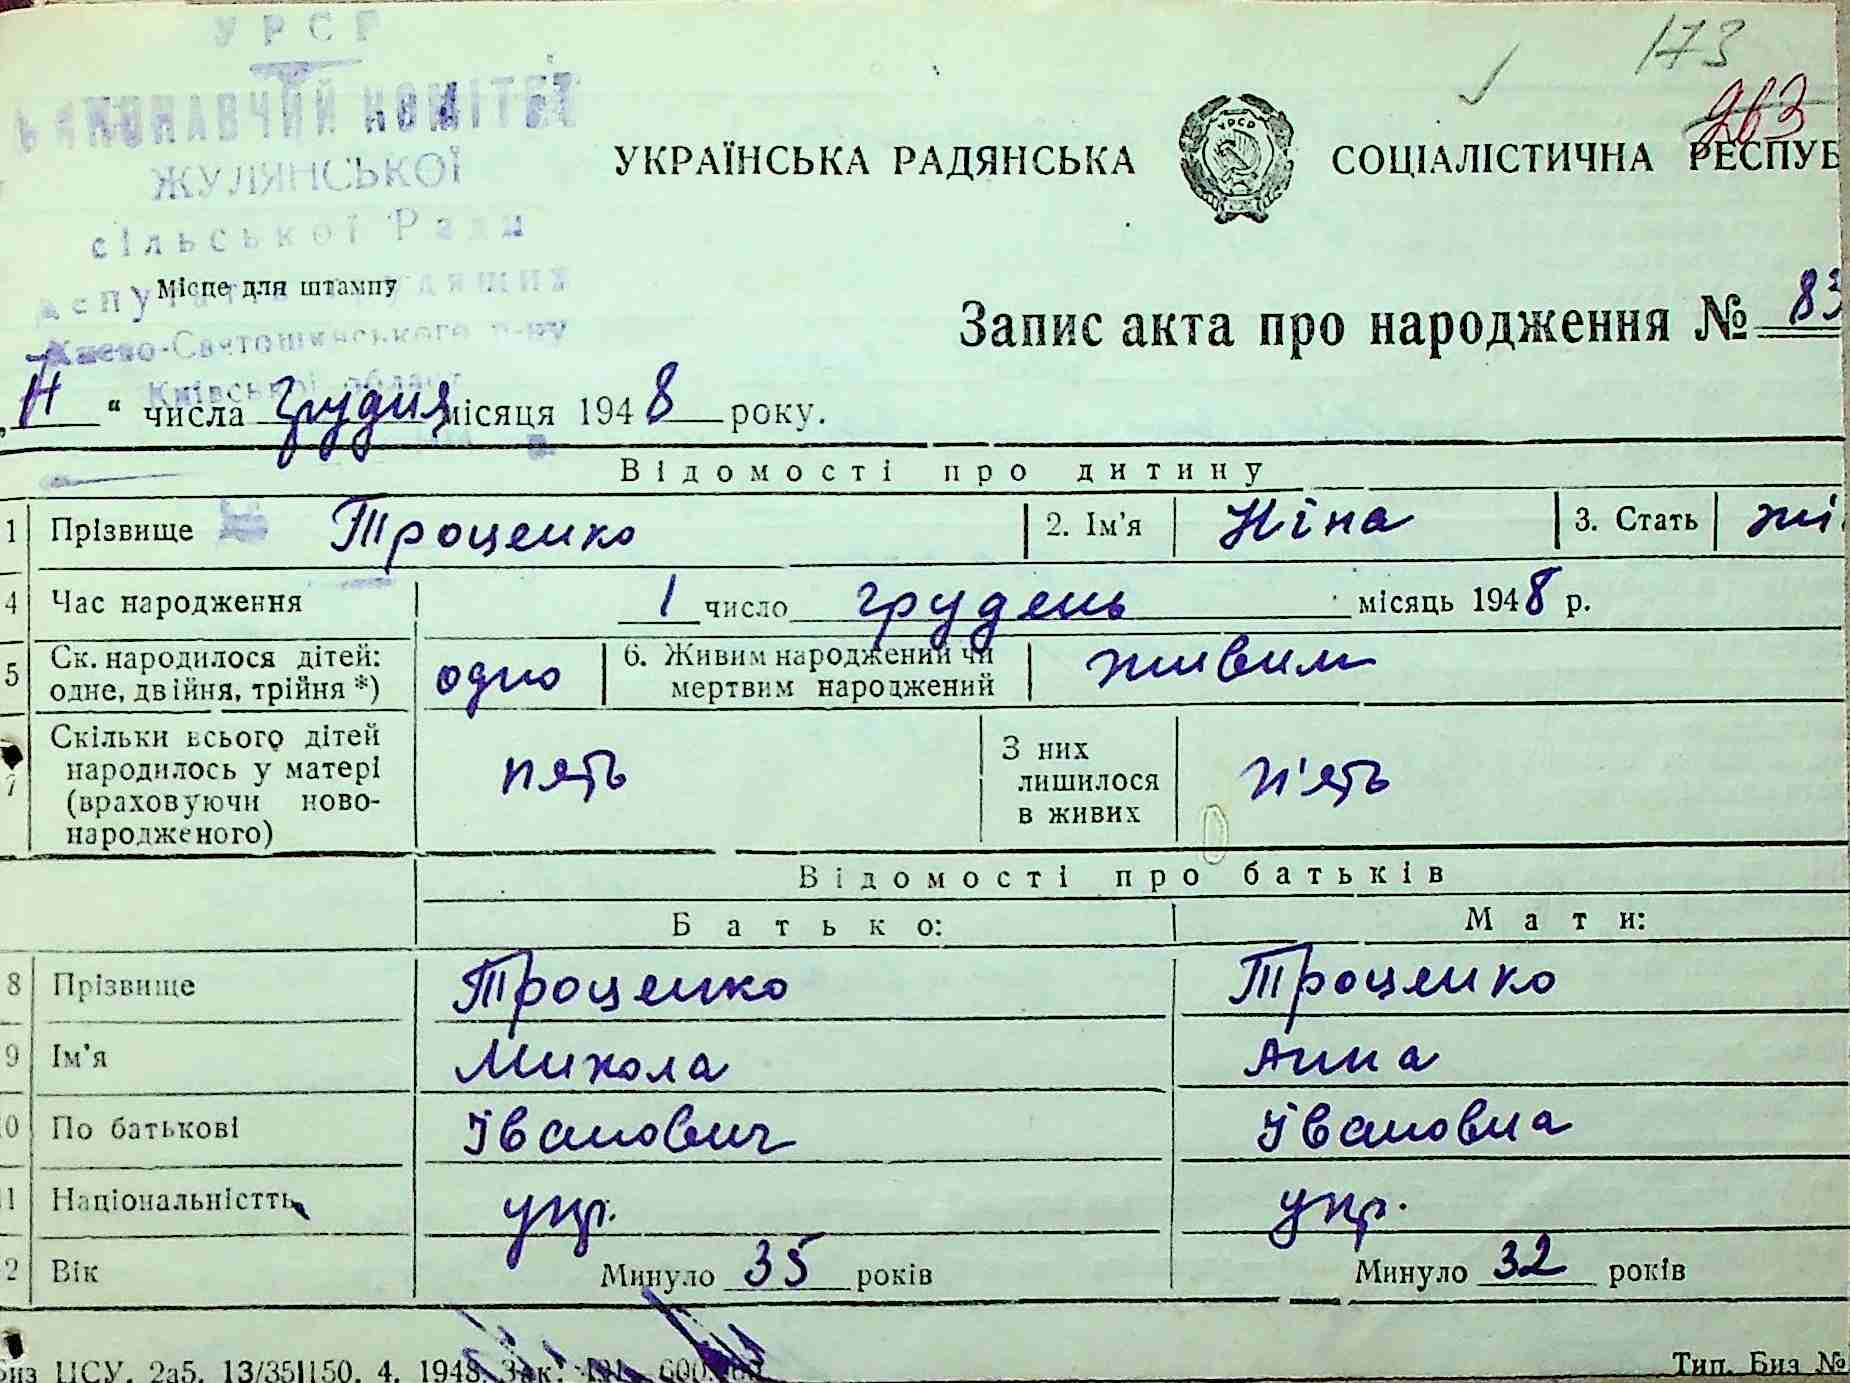 УРСР
ВИКОНАВЧИЙ КОМІТЕТ
ЖУЛЯНСЬКОЇ
сільської Ради
депутатів трудящих
Києво-Святошинського р-ну
Київської області
Місце для штампу
173
263
УКРАЇНСЬКА РАДЯНСЬКА СОЦІАЛІСТИЧНА РЕСПУБ
УРСР
Запис акта про народження № 83
" числа грудня місяця 1948 року.
Відомості про дитину
1 Прізвище Троценко 2. Ім'я Ніна 3. Стать жі
4 Час народження 1 число грудень місяць 1948 р.
5 Ск. народилося дітей: одно 6. Живим народжений чи живим
одне, двійня, трійня *) мертвим народжений
7 Скільки всього дітей З них
народилось у матері пять лишилося п'ять
(враховуючи ново- в живих
народженого)
Відомості про батьків
Батько: Мати:
8 Прізвище Троценко Троценко
9 Ім'я Микола Анна
0 По батькові Іванович Івановна
1 Національністть укр. укр.
2 Вік Минуло 35 років Минуло 32 років
Биз ЦСУ. 2а5. 13/35 1150. 4. 1948. Зак. Тип. Биз №